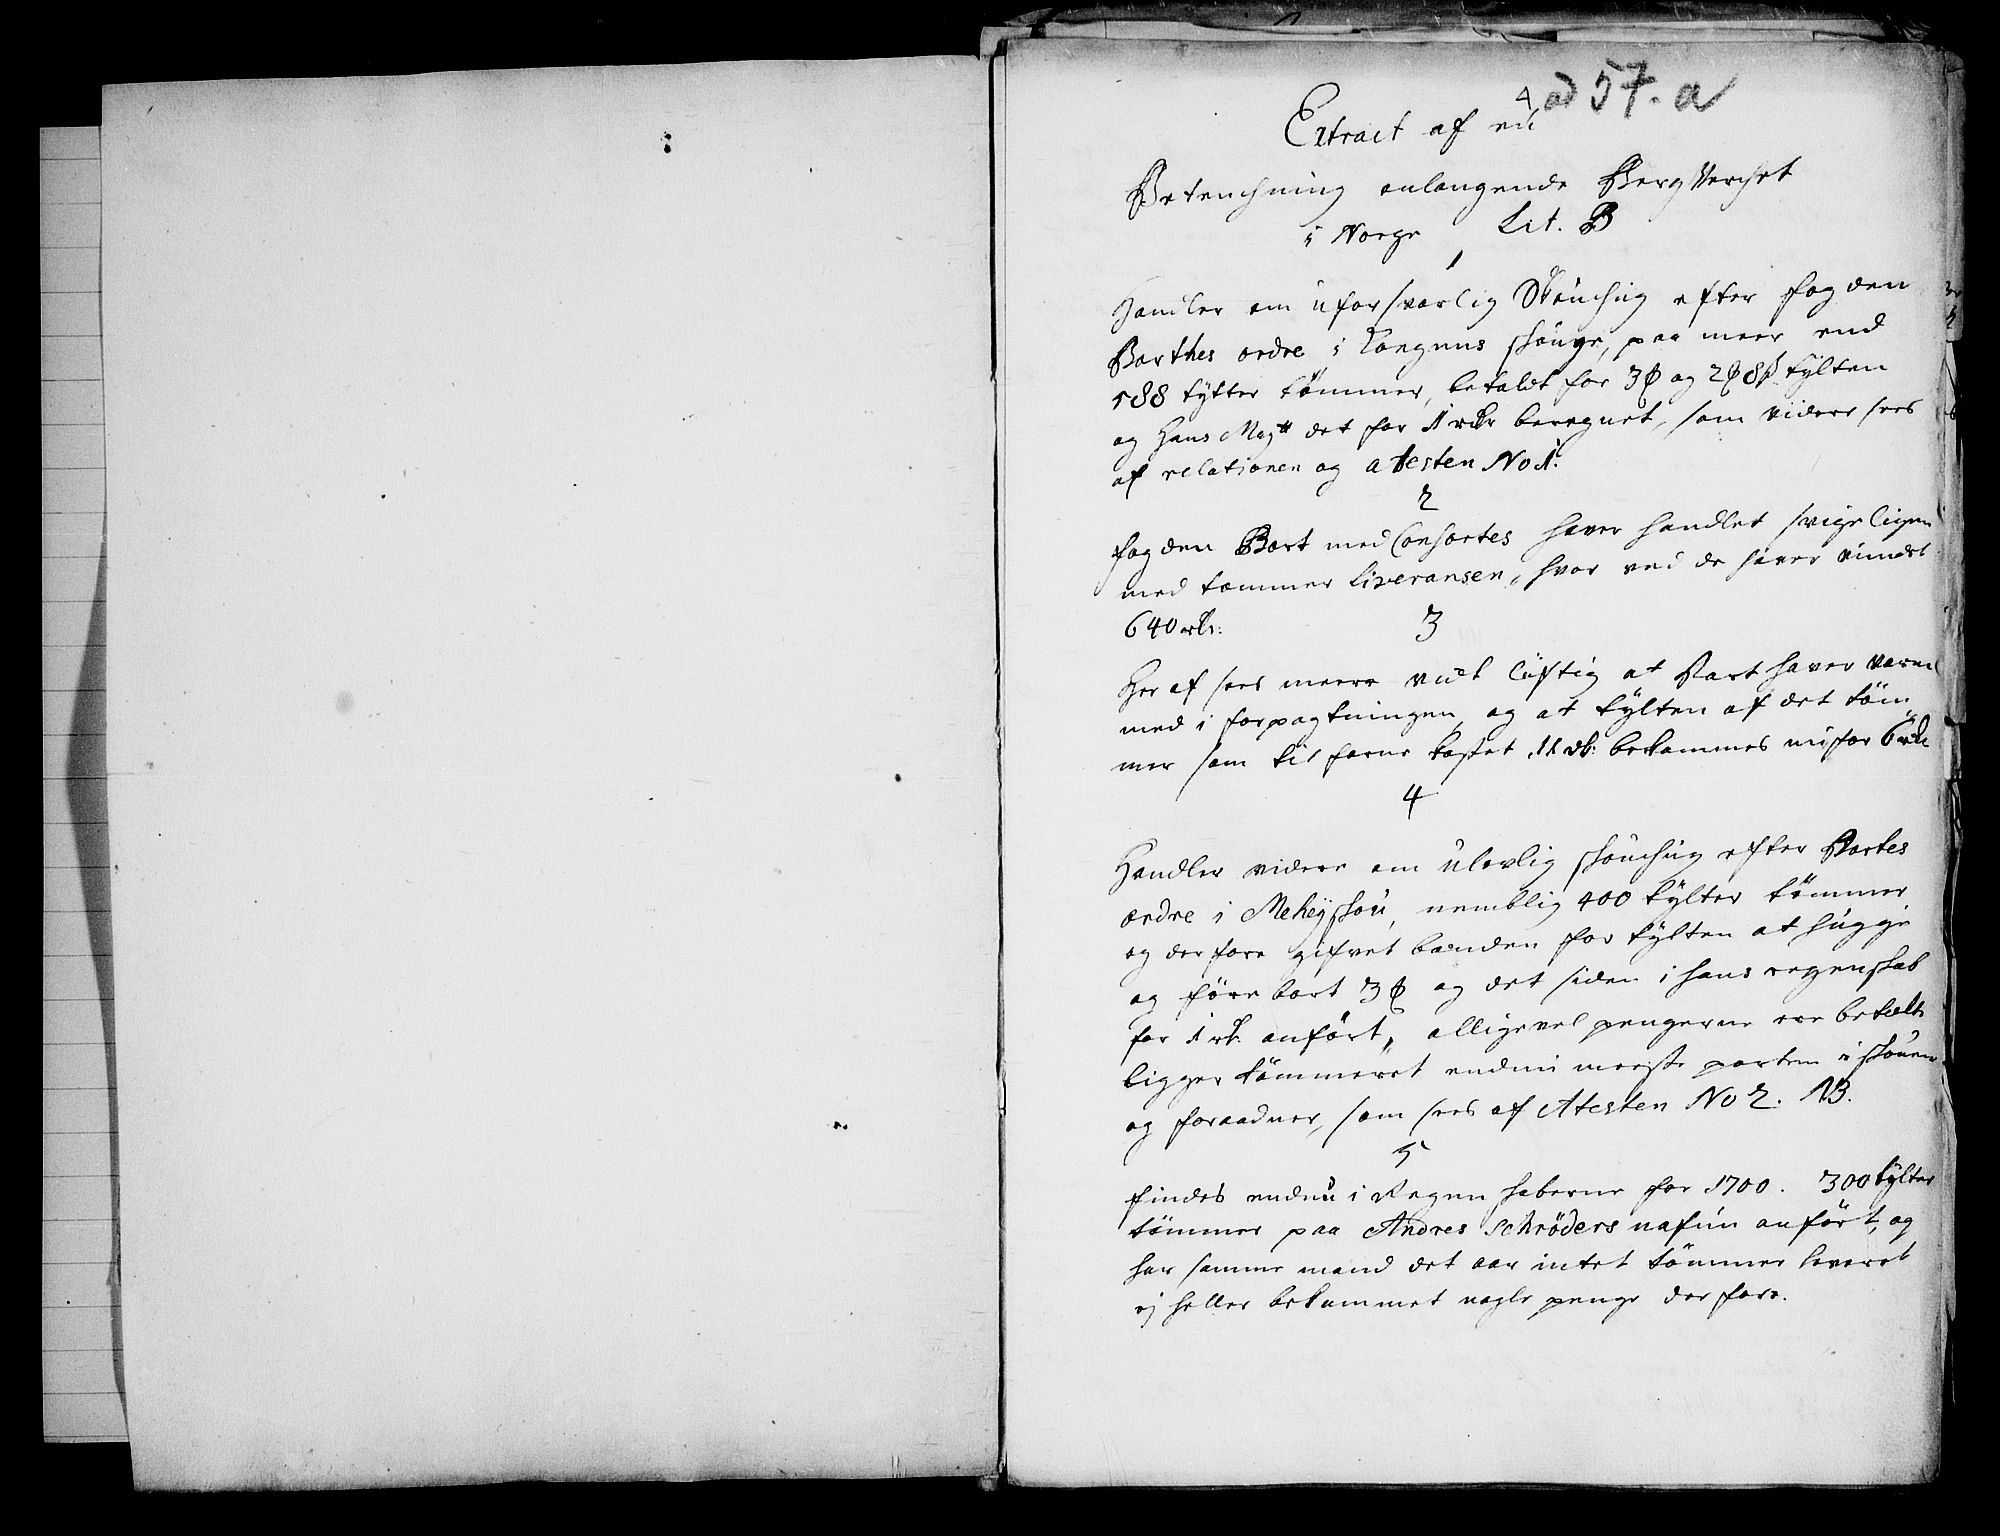 4 ad 57. a
Extract af en
Betenchning anlangende Bergverchet
i Norge Lit. B
1
Handler om uforsvarlig Skouhug efter fogden
Barthes ordre i Kongens skouge, paa meer end
588 tylter tømmer, betaldt for 3 og 2 8 ß tylten
og Hans Maytt det for 1 rdr beregnet, som videre sees
af relationen og atesten No 1.
2
fogden Bart med Consortes haver handlet svigeligen
med tømmer liveransen, hvor ved de haver vundet
640 rdr:
3
Her af sees meere vidtlüftig at Bart haver været
med i forpagtningen, og at tylten af det töm,,
mer som tilforne kostet 11 rdr: bekommes nu for 6 rdr
4
Handler videre om ulovlig skouhug efter Bartes
ordre i Meheyskou, nemblig 400 tylter tömmer
og derfore gifvet bonden for tylten at hugge
og före bort 3 og det siden i hans regenskab
for 1 rdr. anfört, alligevel pengerne ere betalt
ligger tömmeret endnu meeste parten i skouen
og foraadner, som sees af Atesten No 2. NB.
5
findes endnu i Regenskaberne for 1700. 300 tylter
tömmer paa Andres Schröders nafn anfört, og
har samme mand det aar intet tömmer leveret
ej heller bekommet nogle penge derfore.